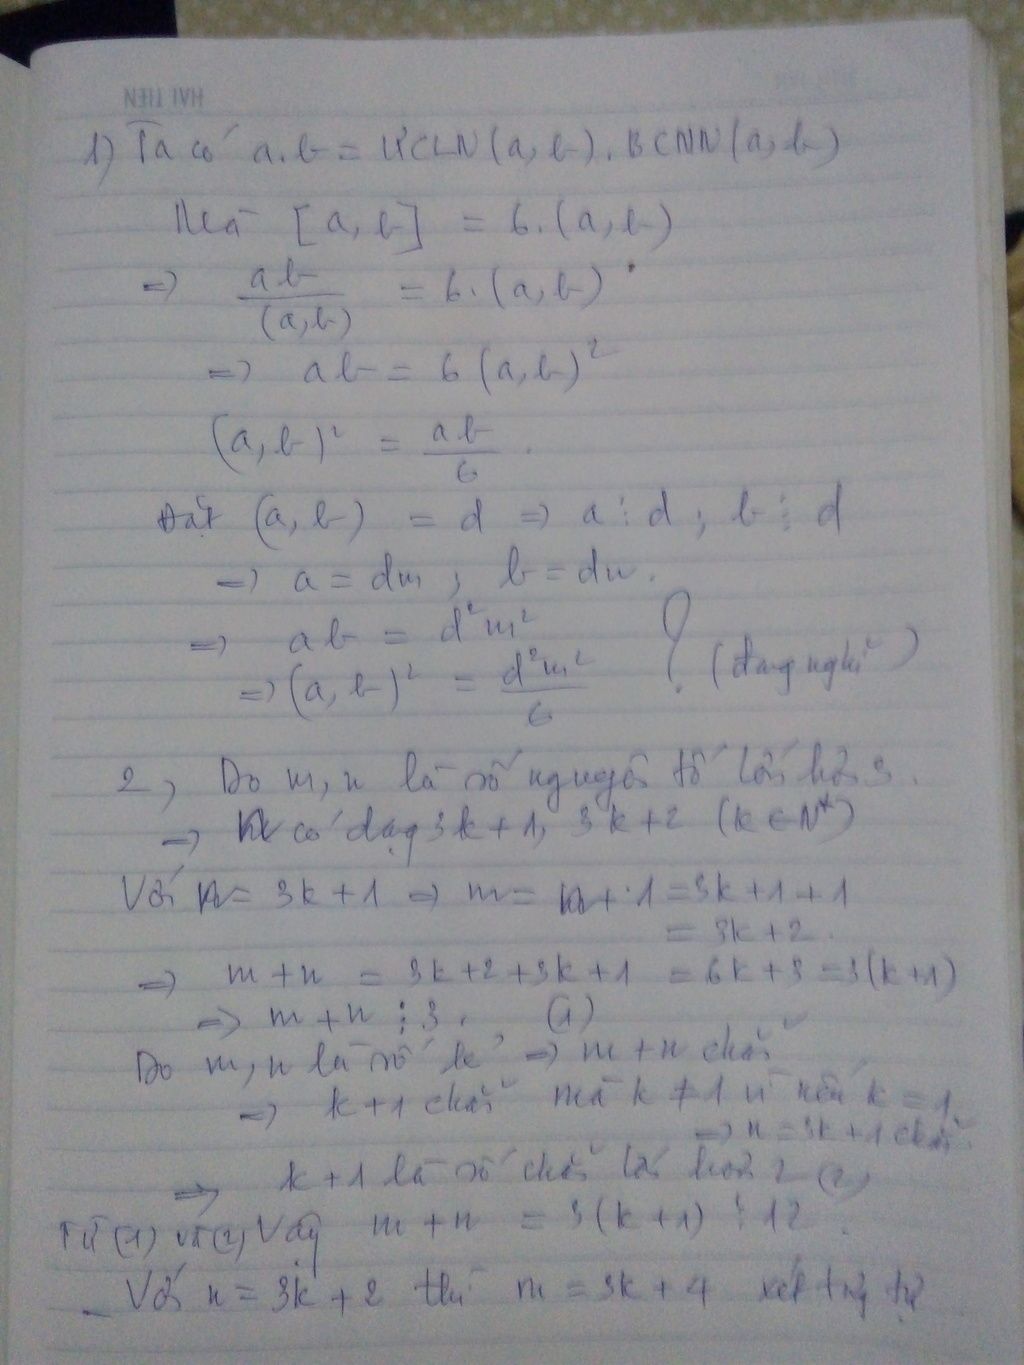 HẢI TIẾN
1) Ta có a.b = ƯCLN(a,b). BCNN(a,b)
Mà [a,b] = 6.(a,b)
=> ab/(a,b) = 6.(a,b)
=> ab = 6(a,b)²
(a,b)² = ab/6.
Đặt (a,b) = d => a⋮d; b⋮d
=> a = dm; b = dn.
=> ab = d²m²
=> (a,b)² = d²m²/6 ? (đang nghĩ)
2, Do m,n là số nguyên tố lớn hơn 3.
=> n có dạng 3k+1, 3k+2 (k∈N*)
Với n = 3k+1 => m = n+1 = 3k+1+1
= 3k+2.
=> m+n = 3k+2+3k+1 = 6k+3 = 3(k+1)
=> m+n ⋮ 3. (1)
Do m,n là số lẻ => m+n chẵn
=> k+1 chẵn mà k ≠ 1 vì nếu k = 1
=> n = 3k+1 chẵn.
=> k+1 là số chẵn lớn hơn 2 (2)
Từ (1) và (2) Vậy m+n = 3(k+1) ⋮ 12.
- Với n = 3k+2 thì m = 3k+4 xét tương tự